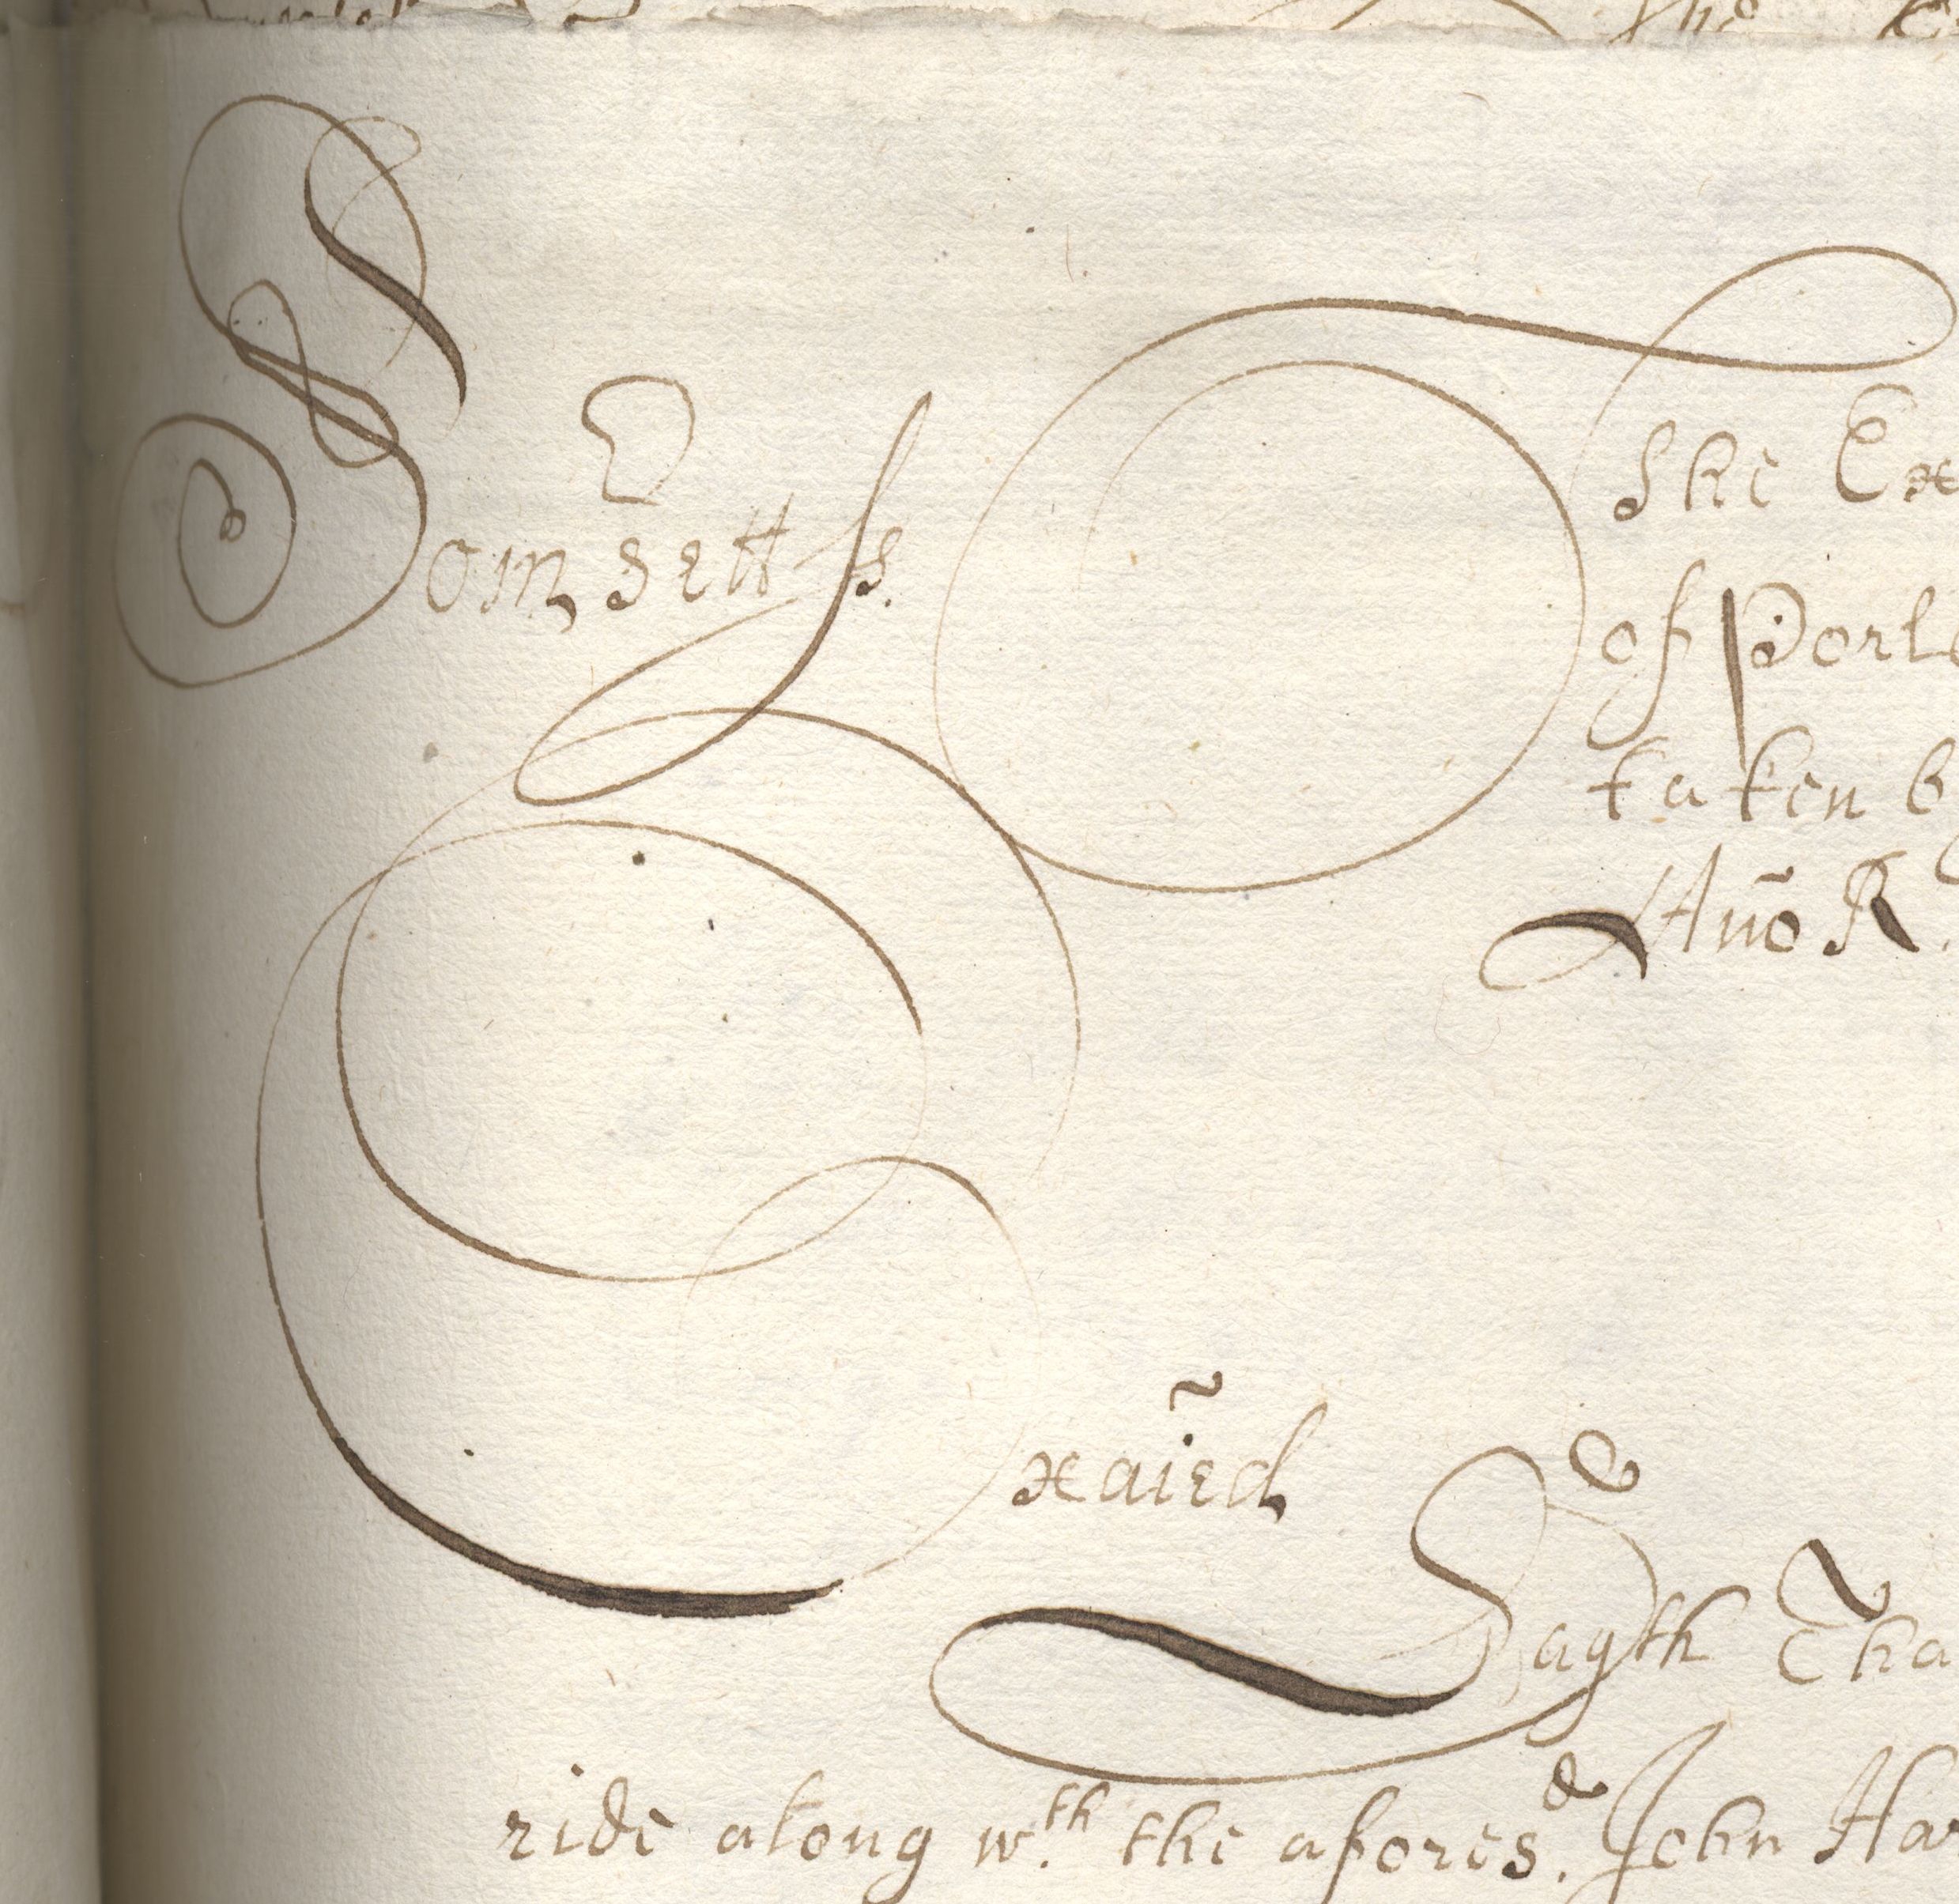 Somsett ss.
The Ex
of Porl
taken b
Año R
Exaied
Sayth Tha
ride along wth the aforesd. John Har